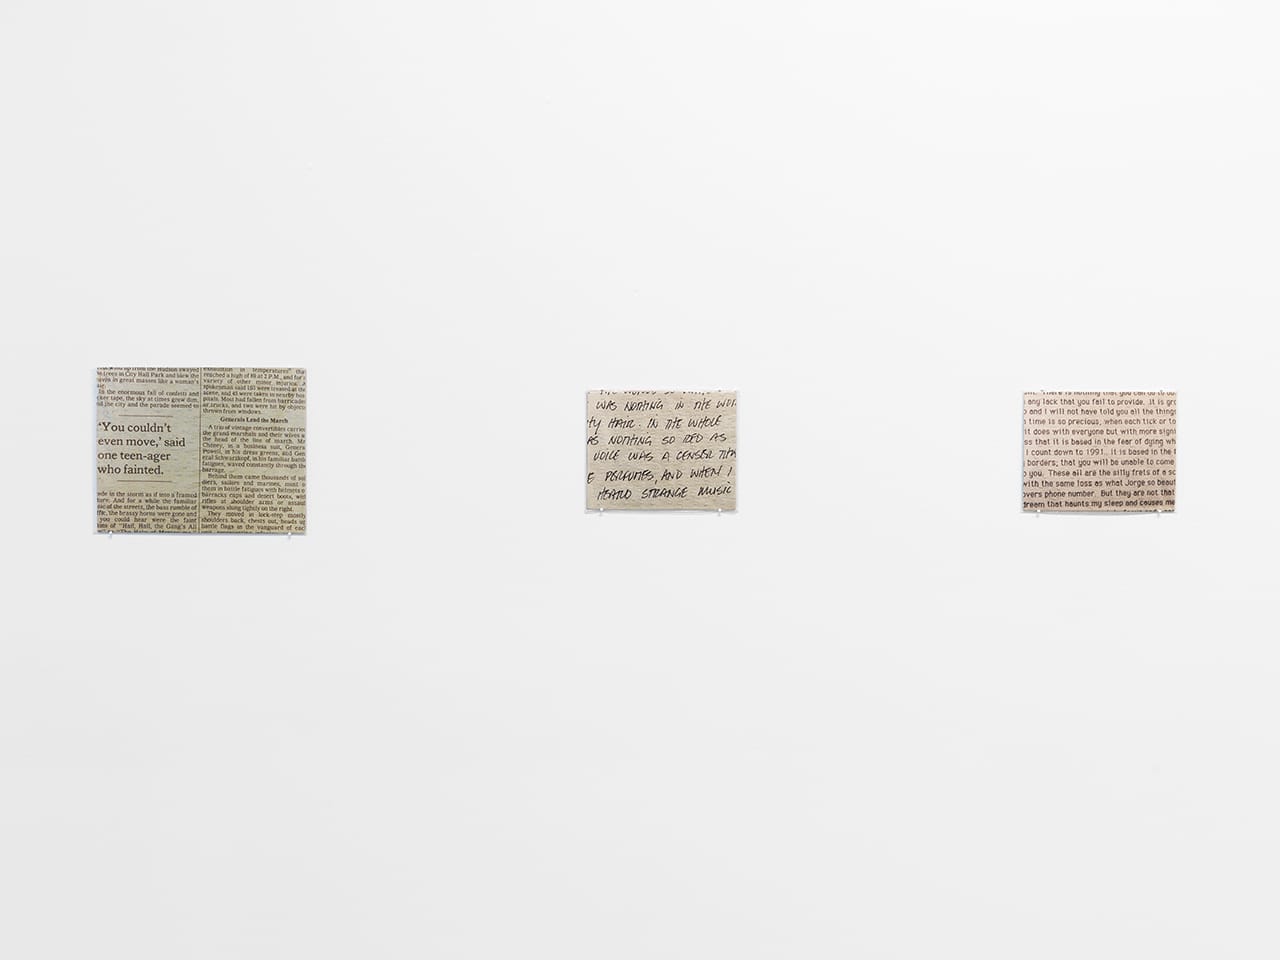 trees in City Hall Park and blew the
in great masses like a woman's
In the enormous fall of confetti and
ticker tape, the sky at times grew dim,
and the city and the parade seemed to
'You couldn't
even move,' said
one teen-ager
who fainted.
in the storm as if into a framed
And for a while the familiar
of the streets, the bass rumble of
the brassy horns were gone and
you could hear were the faint
of "Hail, Hall, the Gang's All
exhibition in temperatures" that
reached a high of 89 at 2 P.M., and for a
variety of other minor injuries. A
spokesman said 153 were treated at the
scene, and 45 were taken to nearby hos-
pitals. Most had fallen from barricades
or trucks, and two were hit by objects
thrown from windows.
Generals Lead the March
A trio of vintage convertibles carried
the grand marshals and their wives at
the head of the line of march. Mr.
Cheney, in a business suit, General
Powell, in his dress greens, and Gen-
eral Schwarzkopf, in his familiar battle
fatigues, waved constantly through the
barrage.
Behind them came thousands of sol-
diers, sailors and marines, most of
them in battle fatigues with helmets or
barracks caps and desert boots, with
rifles at shoulder arms or assault
weapons slung tightly on the right.
They moved in lock-step mostly,
shoulders back, chests out, heads up,
battle flags in the vanguard of each
WAS NOTHING IN THE WOR
TY HAIR. IN THE WHOLE
AS NOTHING SO RED AS
VOICE WAS A CENSER THA
E PERFUMES, AND WHEN I
HEARD STRANGE MUSIC
There is nothing that you can do to
any lack that you fail to provide. It is gr
and I will not have told you all the things
time is so precious, when each tick or to
it does with everyone but with more signi
ss that it is based in the fear of dying wh
I count down to 1991.. It is based in the
borders; that you will be unable to come
you. These all are the silly frets of a sc
with the same loss as what Jorge so beaut
overs phone number. But they are not that
dream that haunts my sleep and causes me